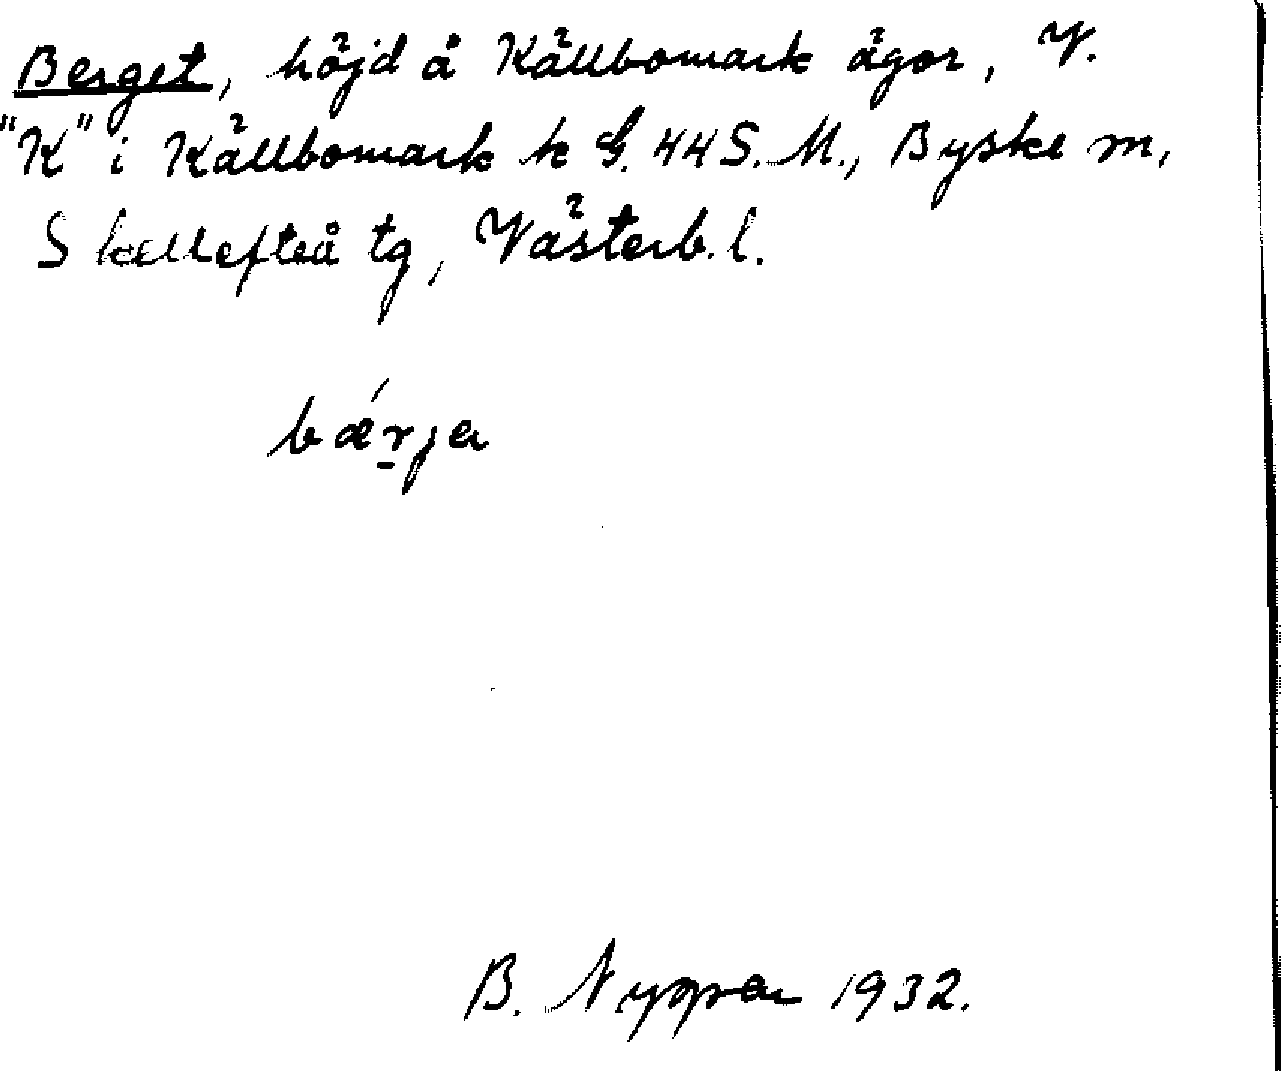 Berget, höjd å Källbomark ägor, V.
"K" i Källbomark k G. 44 S. M., Byske m,
Skellefteå tg, Västerb. l.
bǽr̠ja
B. Nygren 1932.